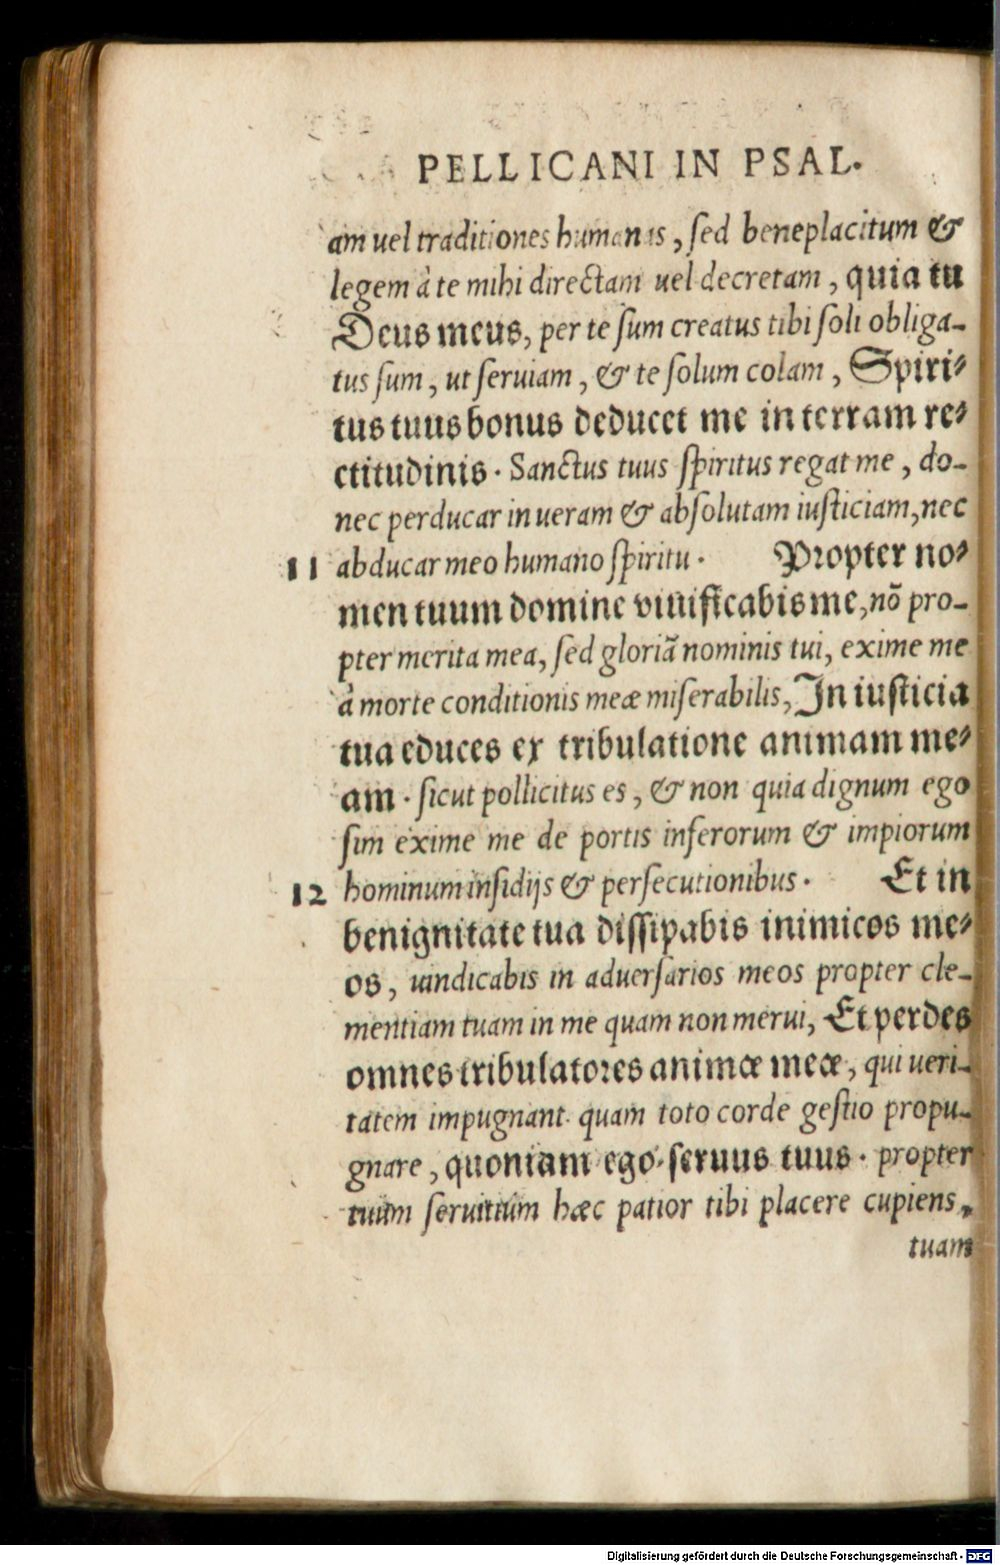 PELLICANI IN PSAL.
am uel traditiones humanas, sed beneplacitum &
legem à te mihi directam uel decretam, quia tu
Deus meus, per te sum creatus tibi soli obliga-
tus sum, ut seruiam, & te solum colam, Spiri-
tus tuus bonus deducet me in terram re-
ctitudinis. Sanctus tuus spiritus regat me, do-
nec perducar in ueram & absolutam iusticiam, nec
11 abducar meo humano spiritu. Propter no-
men tuum domine viuificabis me, nõ pro-
pter merita mea, sed gloriã nominis tui, exime me
à morte conditionis meæ miserabilis, In iusticia
tua educes ex tribulatione animam me-
am. sicut pollicitus es, & non quia dignum ego
sim exime me de portis inferorum & impiorum
12 hominum insidijs & persecutionibus. Et in
benignitate tua dissipabis inimicos me-
os, uindicabis in aduersarios meos propter cle-
mentiam tuam in me quam non merui, Et perdes
omnes tribulatores animæ meæ, qui ueri-
tatem impugnant. quam toto corde gestio propu-
gnare, quoniam ego seruus tuus. propter
tuum seruitium hæc patior tibi placere cupiens,
tuam
Digitalisierung gefördert durch die Deutsche Forschungsgemeinschaft - DFG